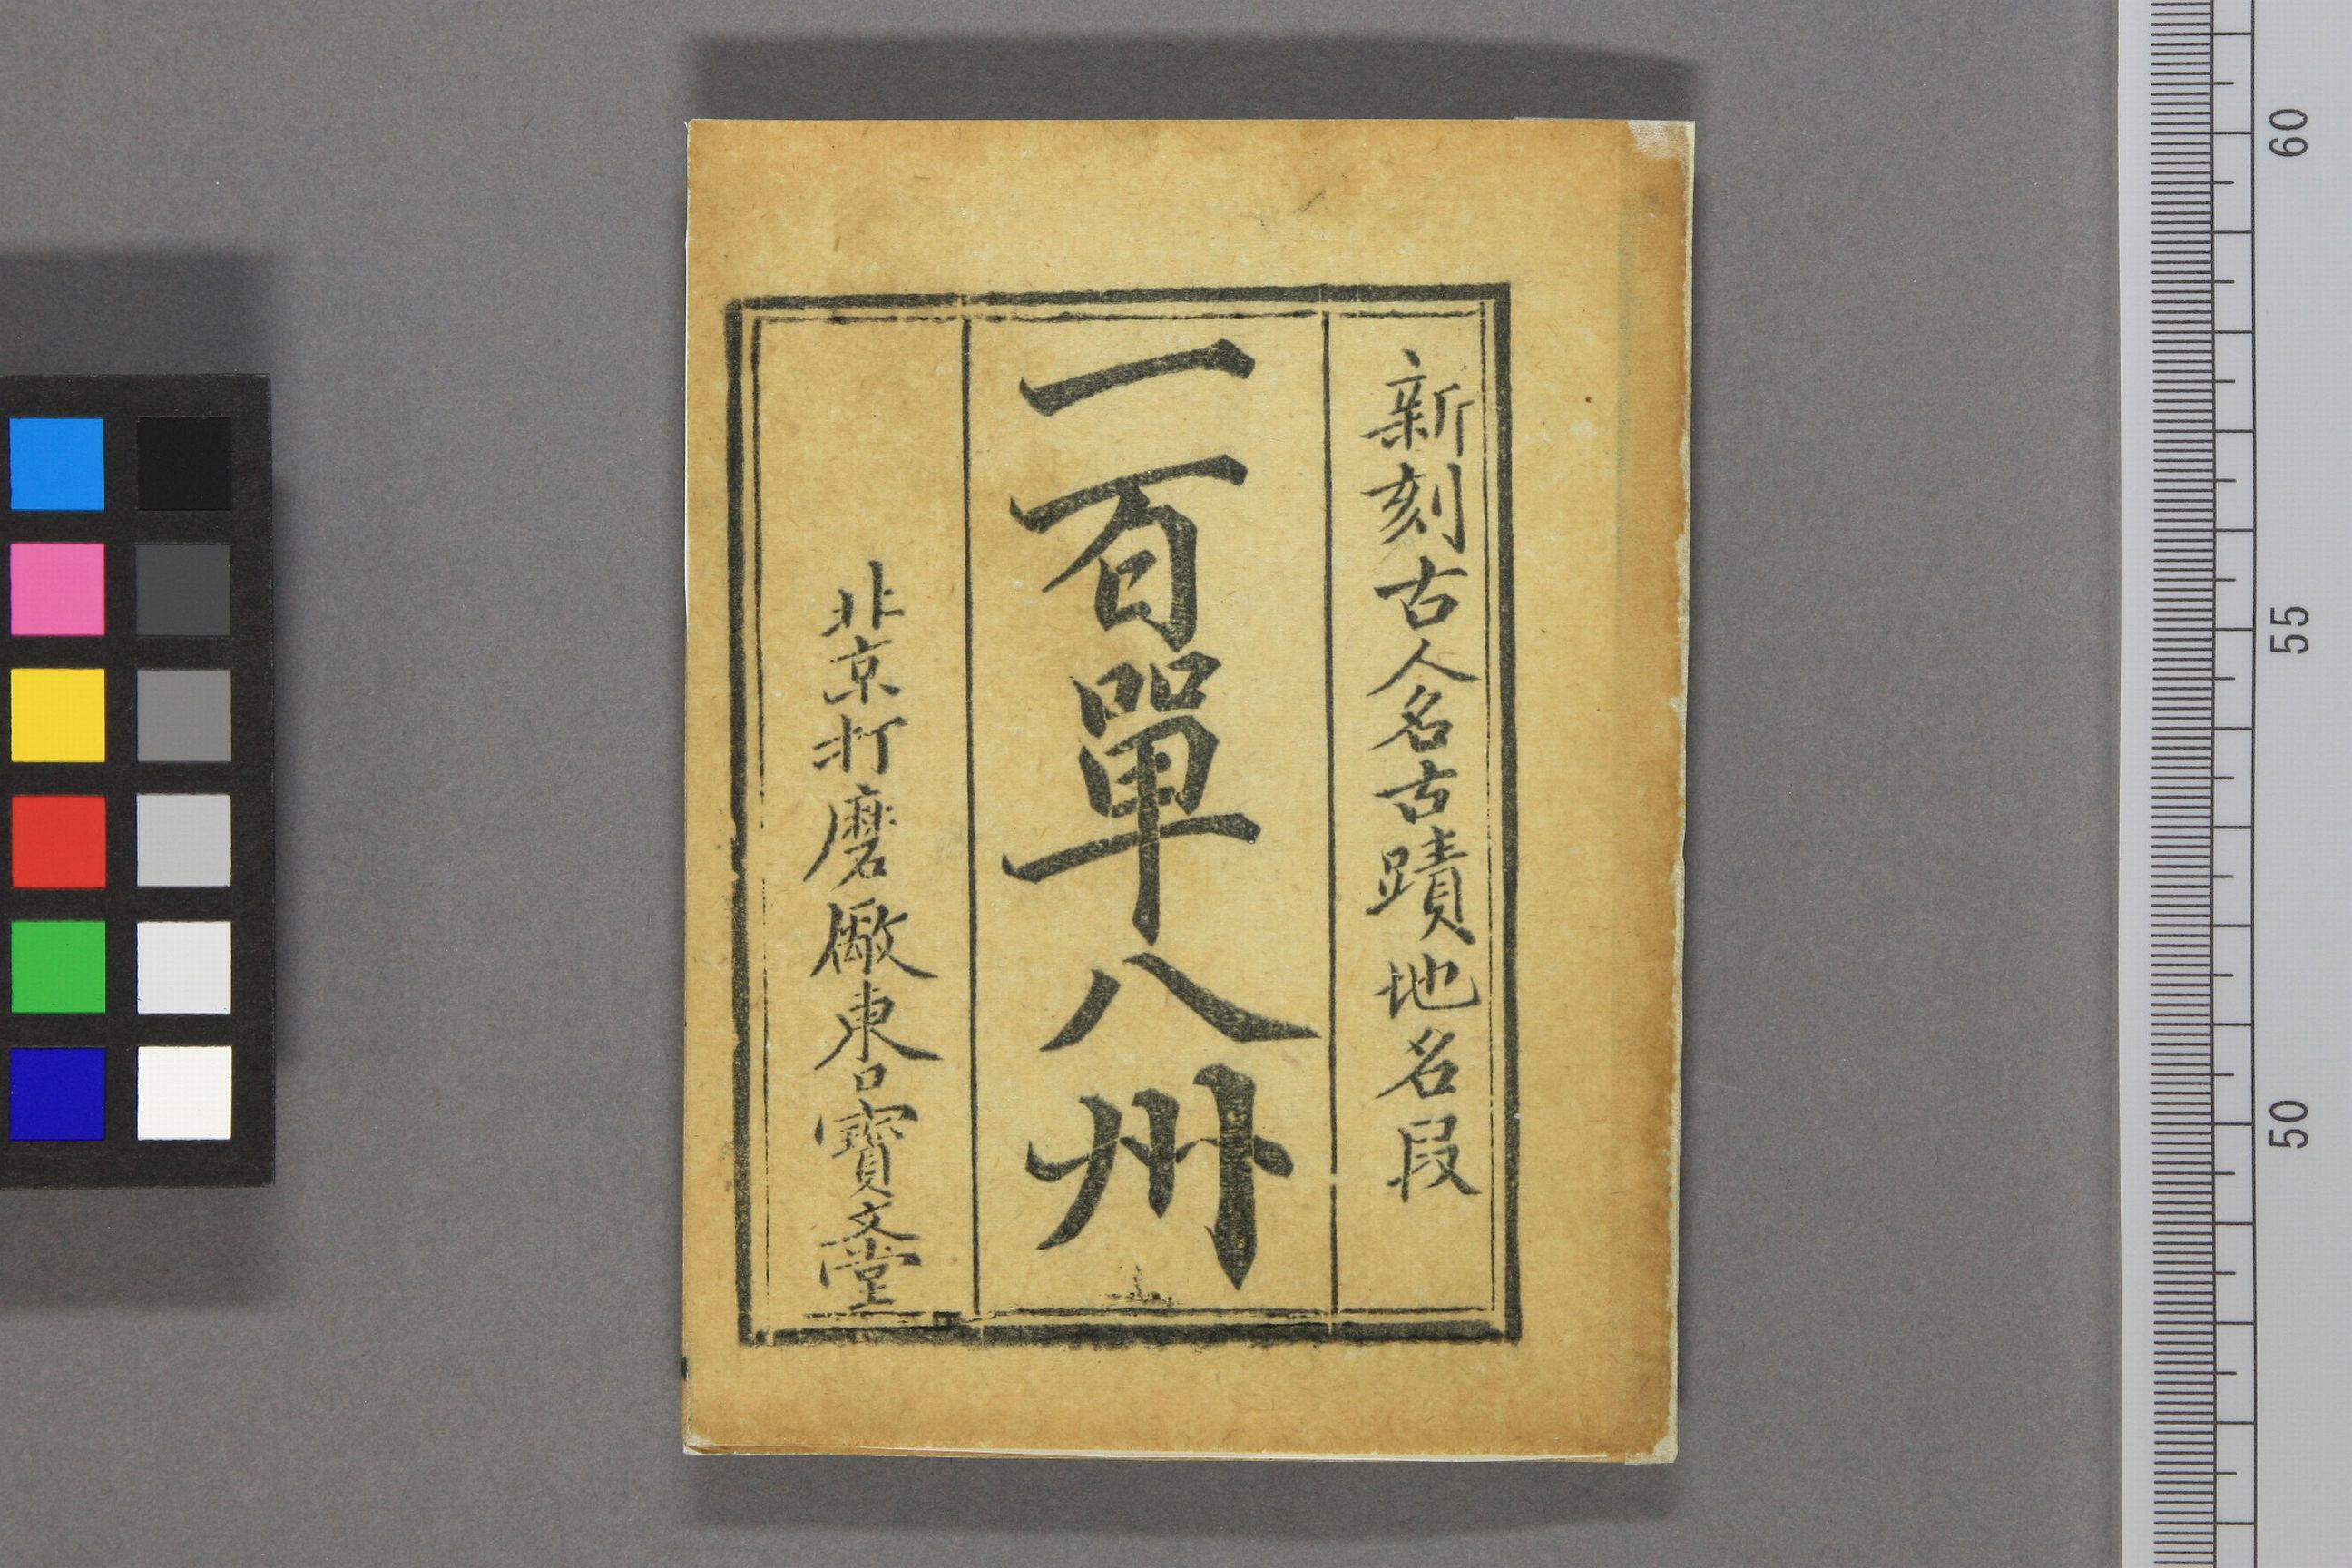 新刻古人名古蹟地名段
一百單八州
北京打磨厰東口寳文堂
60
55
50